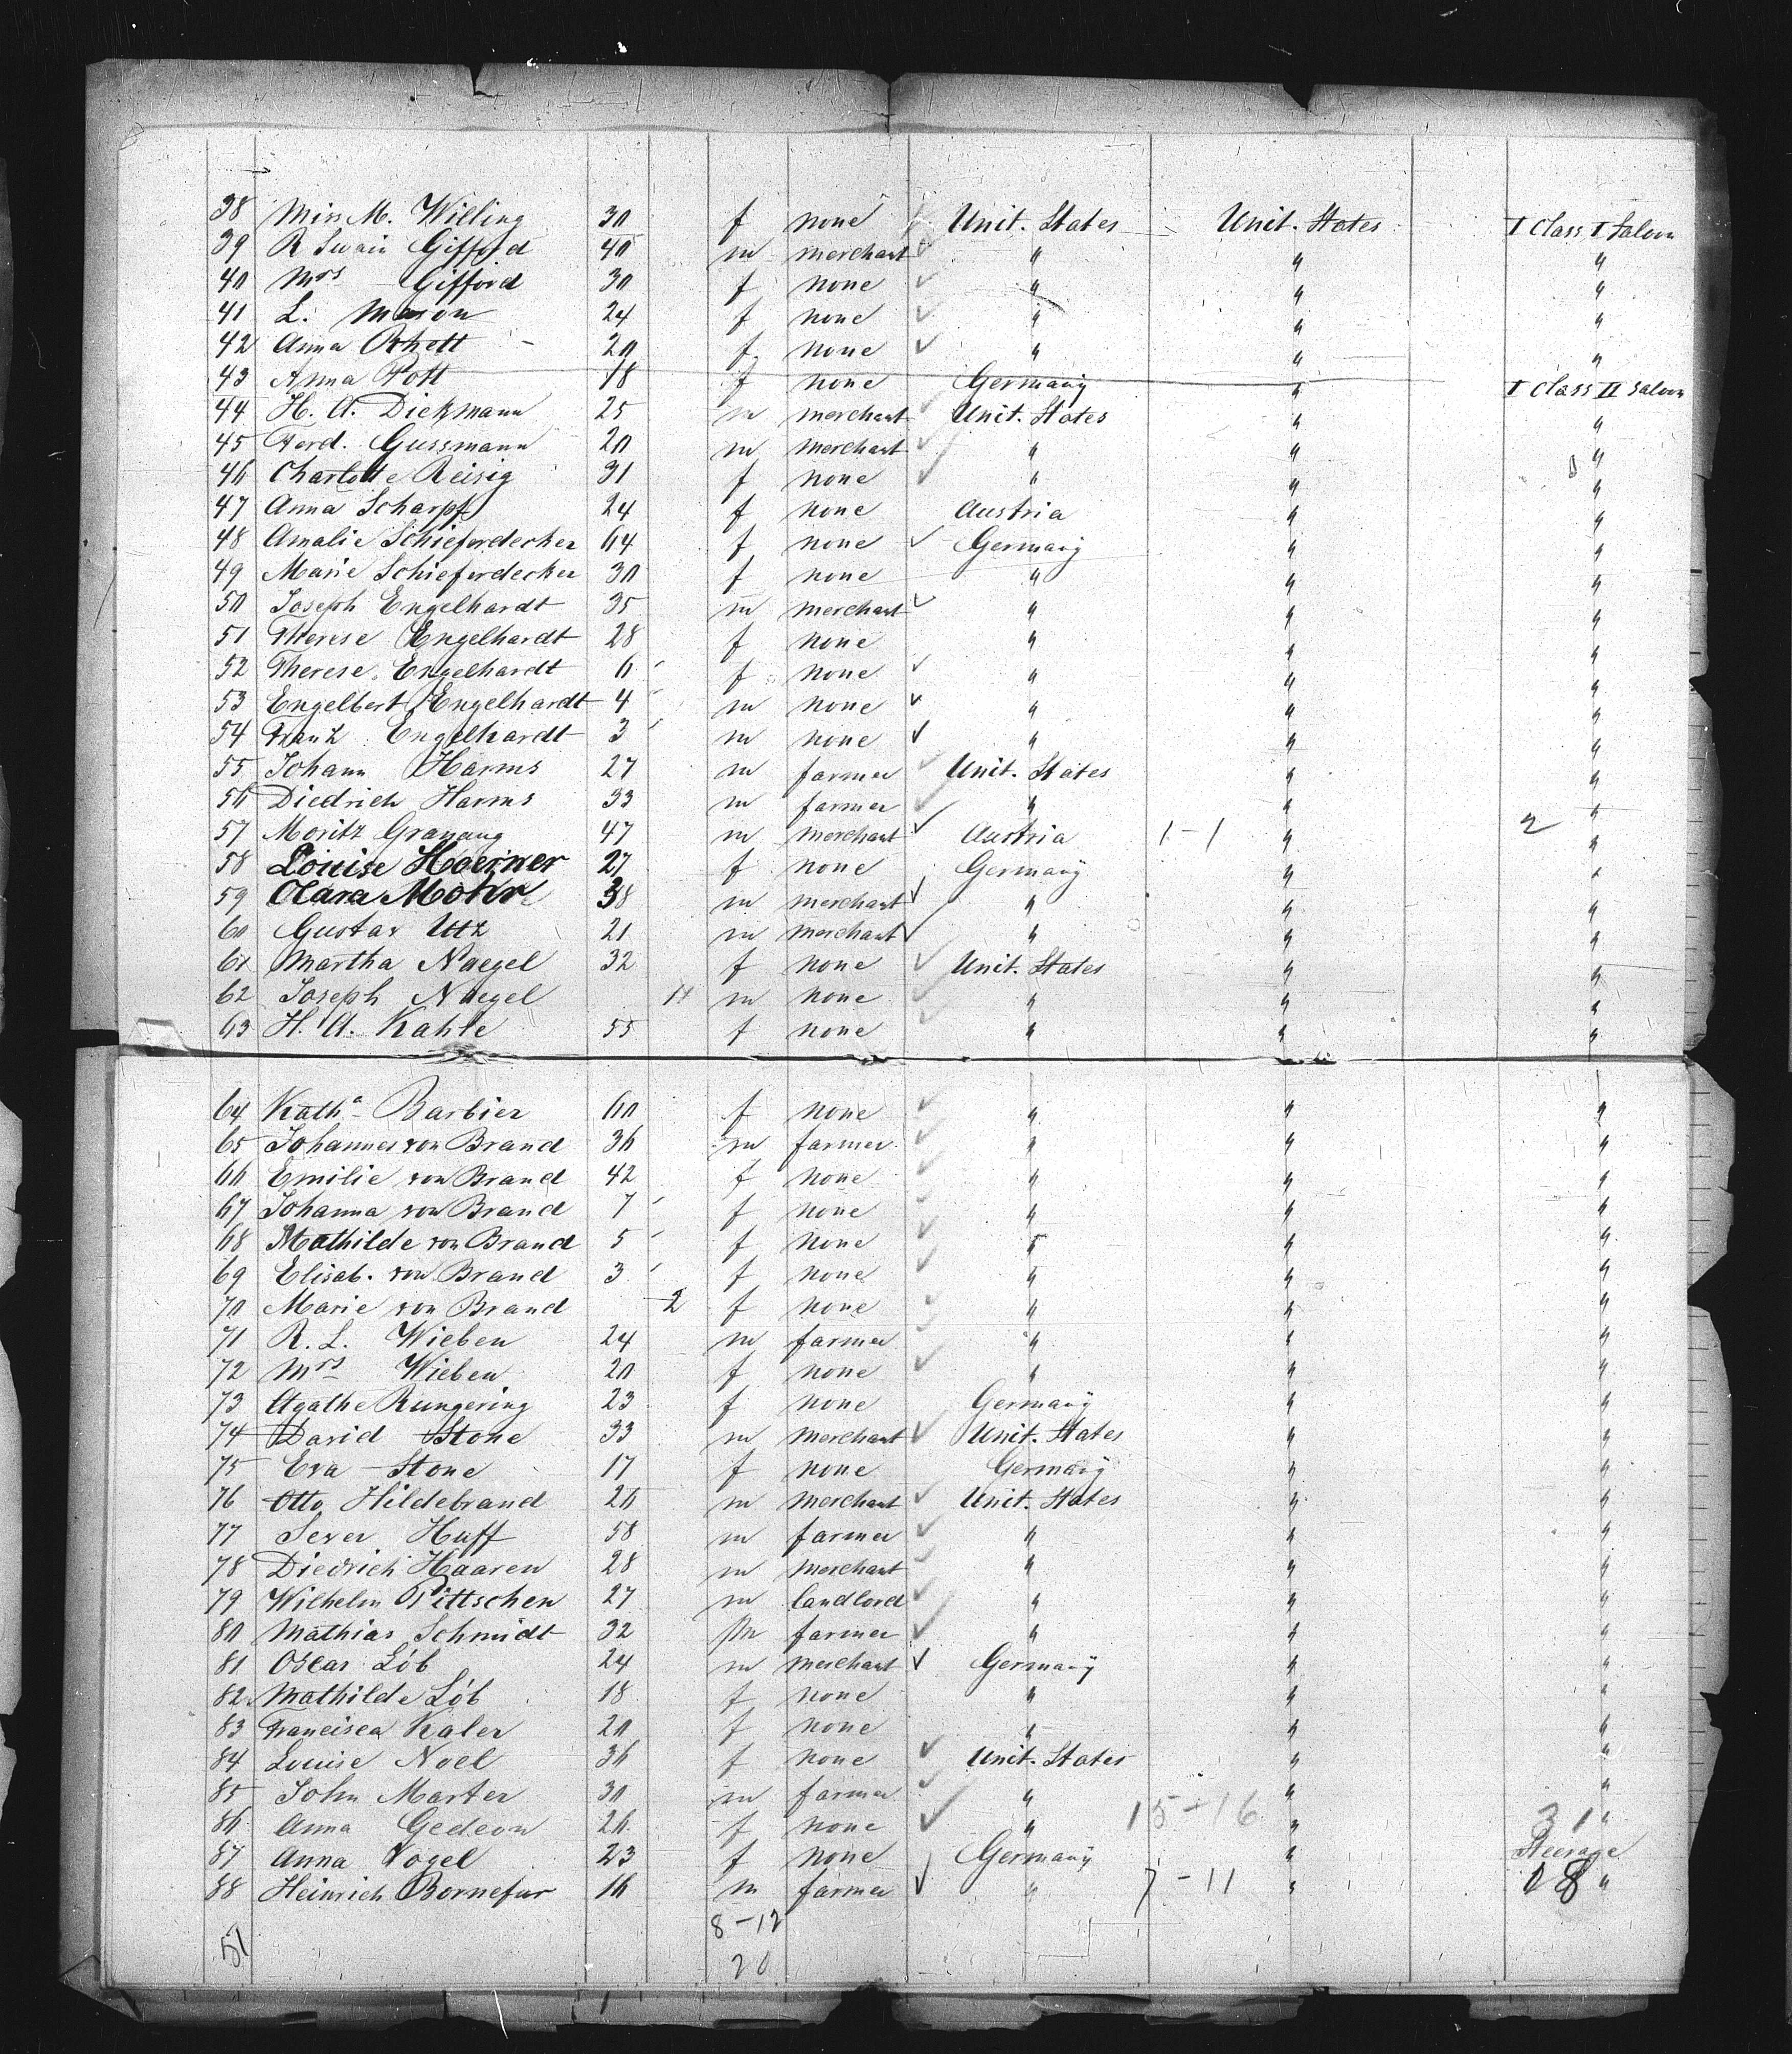 38 Miss M. Willing 30 f none Unit. States Unit. States I Class I Saloon
39 R Swain Gifford 40 m merchant " " "
40 Mrs Gifford 30 f none " " "
41 L. Mason 24 f none " " "
42 Anna Rhett - 20 f none " " "
43 Anna Pott 18 f none Germany " I Class II Saloon
44 H. A. Diekmann 25 m merchant Unit. States " "
45 Ferd. Gussmann 20 m merchant " " "
46 Charlotte Reisig 31 f none " " "
47 Anna Scharpf 24 f none Austria " "
48 Amalie Schieferdecker 64 f none Germany " "
49 Marie Schieferdecker 30 f none " " "
50 Joseph Engelhardt 35 m merchant " " "
51 Therese Engelhardt 28 f none " " "
52 Therese Engelhardt 6 f none " " "
53 Engelbert Engelhardt 4 m none " " "
54 Franz Engelhardt 3 m none " " "
55 Johann Harms 27 m farmer Unit. States " "
56 Diedrich Harms 33 m farmer " " "
57 Moritz Granaug 47 m merchant Austria 1-1 " 2 "
58 Louise Hoerner 27 f none Germany " "
59 Clara Mohr 38 m merchant " " "
60 Gustav Utz 21 m merchant " " "
61 Martha Naegel 32 f none Unit. States " "
62 Joseph Naegel m none " " "
63 H. A. Kahle 55 f none " " "
64 Katha Barbier 60 f none " " "
65 Johannes von Brand 36 m farmer " " "
66 Emilie von Brand 42 f none " " "
67 Johanna von Brand 7 f none " " "
68 Mathilde von Brand 5 f none " " "
69 Elisab. von Brand 3 f none " " "
70 Marie von Brand 2 f none " " "
71 R. L. Wieben 24 m farmer " " "
72 Mrs Wieben 20 f none " " "
73 Agathe Rungering 23 f none Germany " "
74 David Stone 33 m merchant Unit. States " "
75 Eva Stone 17 f none Germany " "
76 Otto Hildebrand 26 m merchant Unit. States " "
77 Sever Huff 58 m farmer " " "
78 Diedrich Haaren 28 m merchant " " "
79 Wilhelm Pittschen 27 m landlord " " "
80 Mathias Schmidt 32 m farmer " " "
81 Oscar Löb 24 m merchant Germany " "
82 Mathilde Löb 18 f none " " "
83 Francisca Kaler 20 f none " " "
84 Louise Noel 36 f none Unit. States " "
85 John Marter 30 m farmer " " "
86 Anna Gedeon 26 f none " 15-16 " 31 "
87 Anna Vogel 23 f none Germany " Steerage
88 Heinrich Bornefur 16 m farmer " 7-11 " 18 "
51 8-12
20